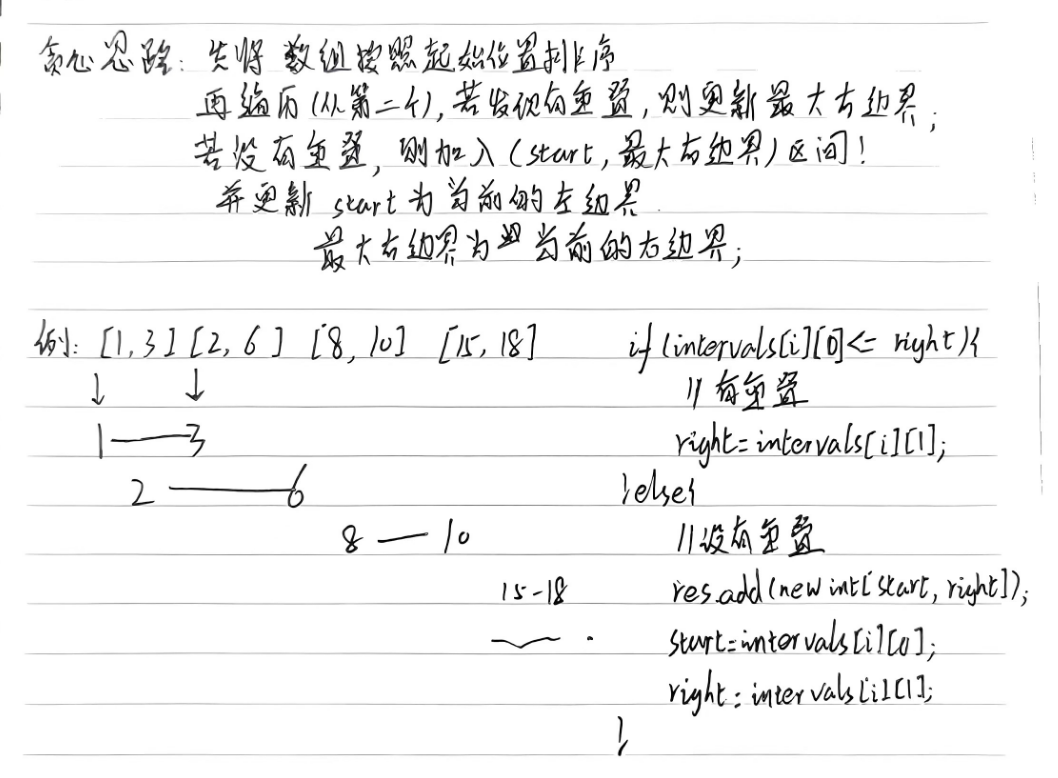 贪心思路: 先将 数组按照起始位置排序
再遍历(从第二个),若发现有重叠,则更新最大右边界;
若没有重叠,则加入(start,最大右边界)区间!
并更新 start为当前的左边界.
最大右边界为 当前的右边界;
例: [1,3] [2,6] [8,10] [15,18]
1—3
2—6
8—10
15-18
if(intervals[i][0]<= right){
//有重叠
right=intervals[i][1];
}else{
//没有重叠
res.add(new int[start, right]);
start=intervals[i][0];
right=intervals[i][1];
}